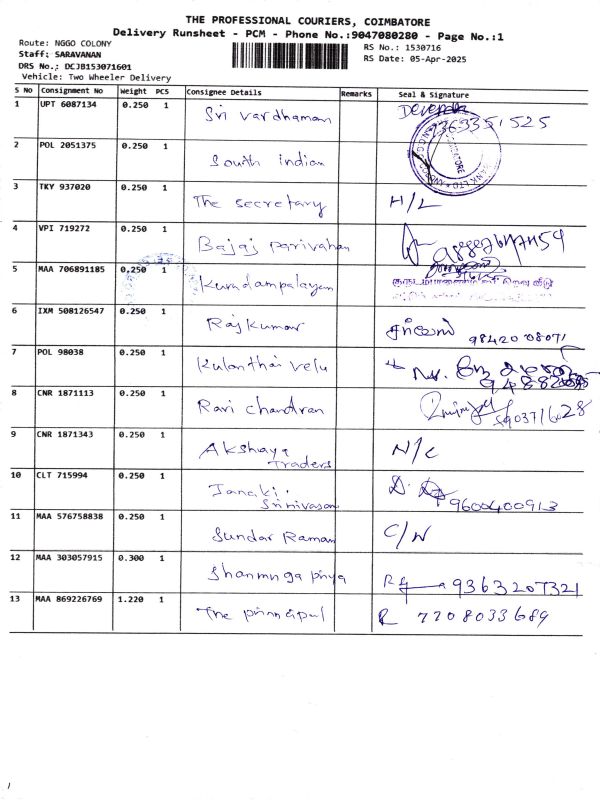 THE PROFESSIONAL COURIERS, COIMBATORE
Delivery Runsheet - PCM - Phone No.:9047080280 - Page No.:1
Route: NGGO COLONY
Staff: SARAVANAN
DRS No.: DCJB153071601
Vehicle: Two Wheeler Delivery
RS No.: 1530716
RS Date: 05-Apr-2025
S No Consignment No Weight PCS Consignee Details Remarks Seal & Signature
1 UPT 6087134 0.250 1 Sri Vardhaman
2 POL 2051375 0.250 1 South indian
3 TKY 937020 0.250 1 The secretary H/L
4 VPI 719272 0.250 1 Bajaj parivahan
5 MAA 706891185 0.250 1 Kurudampalayam
6 IXM 508126547 0.250 1 Raj Kumar 98420 08071
7 POL 98038 0.250 1 Kulanthai velu
8 CNR 1871113 0.250 1 Ravi chandran
9 CNR 1871343 0.250 1 Akshaya Traders N/C
10 CLT 715994 0.250 1 Janaki Srinivasan 9600400913
11 MAA 576758838 0.250 1 Sundar Raman C/N
12 MAA 303057915 0.300 1 Shanmuga priya 9363207321
13 MAA 869226769 1.220 1 The principal R 7708033689